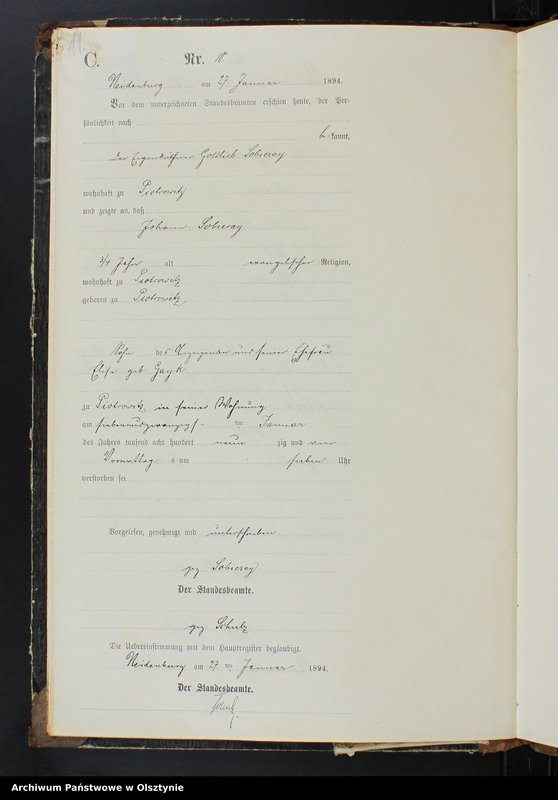 C. Nr. 10
Neidenburg am 27 Januar 1894.
Vor dem unterzeichneten Standesbeamten erschien heute, der Per-
sönlichkeit nach
be-kannt,
der Eigenkäthner Gottlieb Sobieray
wohnhaft zu Piotrowitz
und zeigte an, daß
Johann Sobieray
3/4 Jahr alt evangelischer Religion,
wohnhaft zu Piotrowitz
geboren zu Piotrowitz,
Sohn des Anzeigenden und seiner Ehefrau
geb. Gayk
zu Piotrowitz in seiner Wohnung
am siebenundzwanzigs- ten Januar
des Jahres tausend acht hundert neun zig und vier
Vormittag s um sieben Uhr
verstorben sei
Vorgelesen, genehmigt und unterschrieben
gez Sobieray
Der Standesbeamte.
gez. Schulz
Die Uebereinstimmung mit dem Hauptregister beglaubigt.
Neidenburg am 27 ten Januar 1894.
Der Standesbeamte.
Archiwum Państwowe w Olsztynie